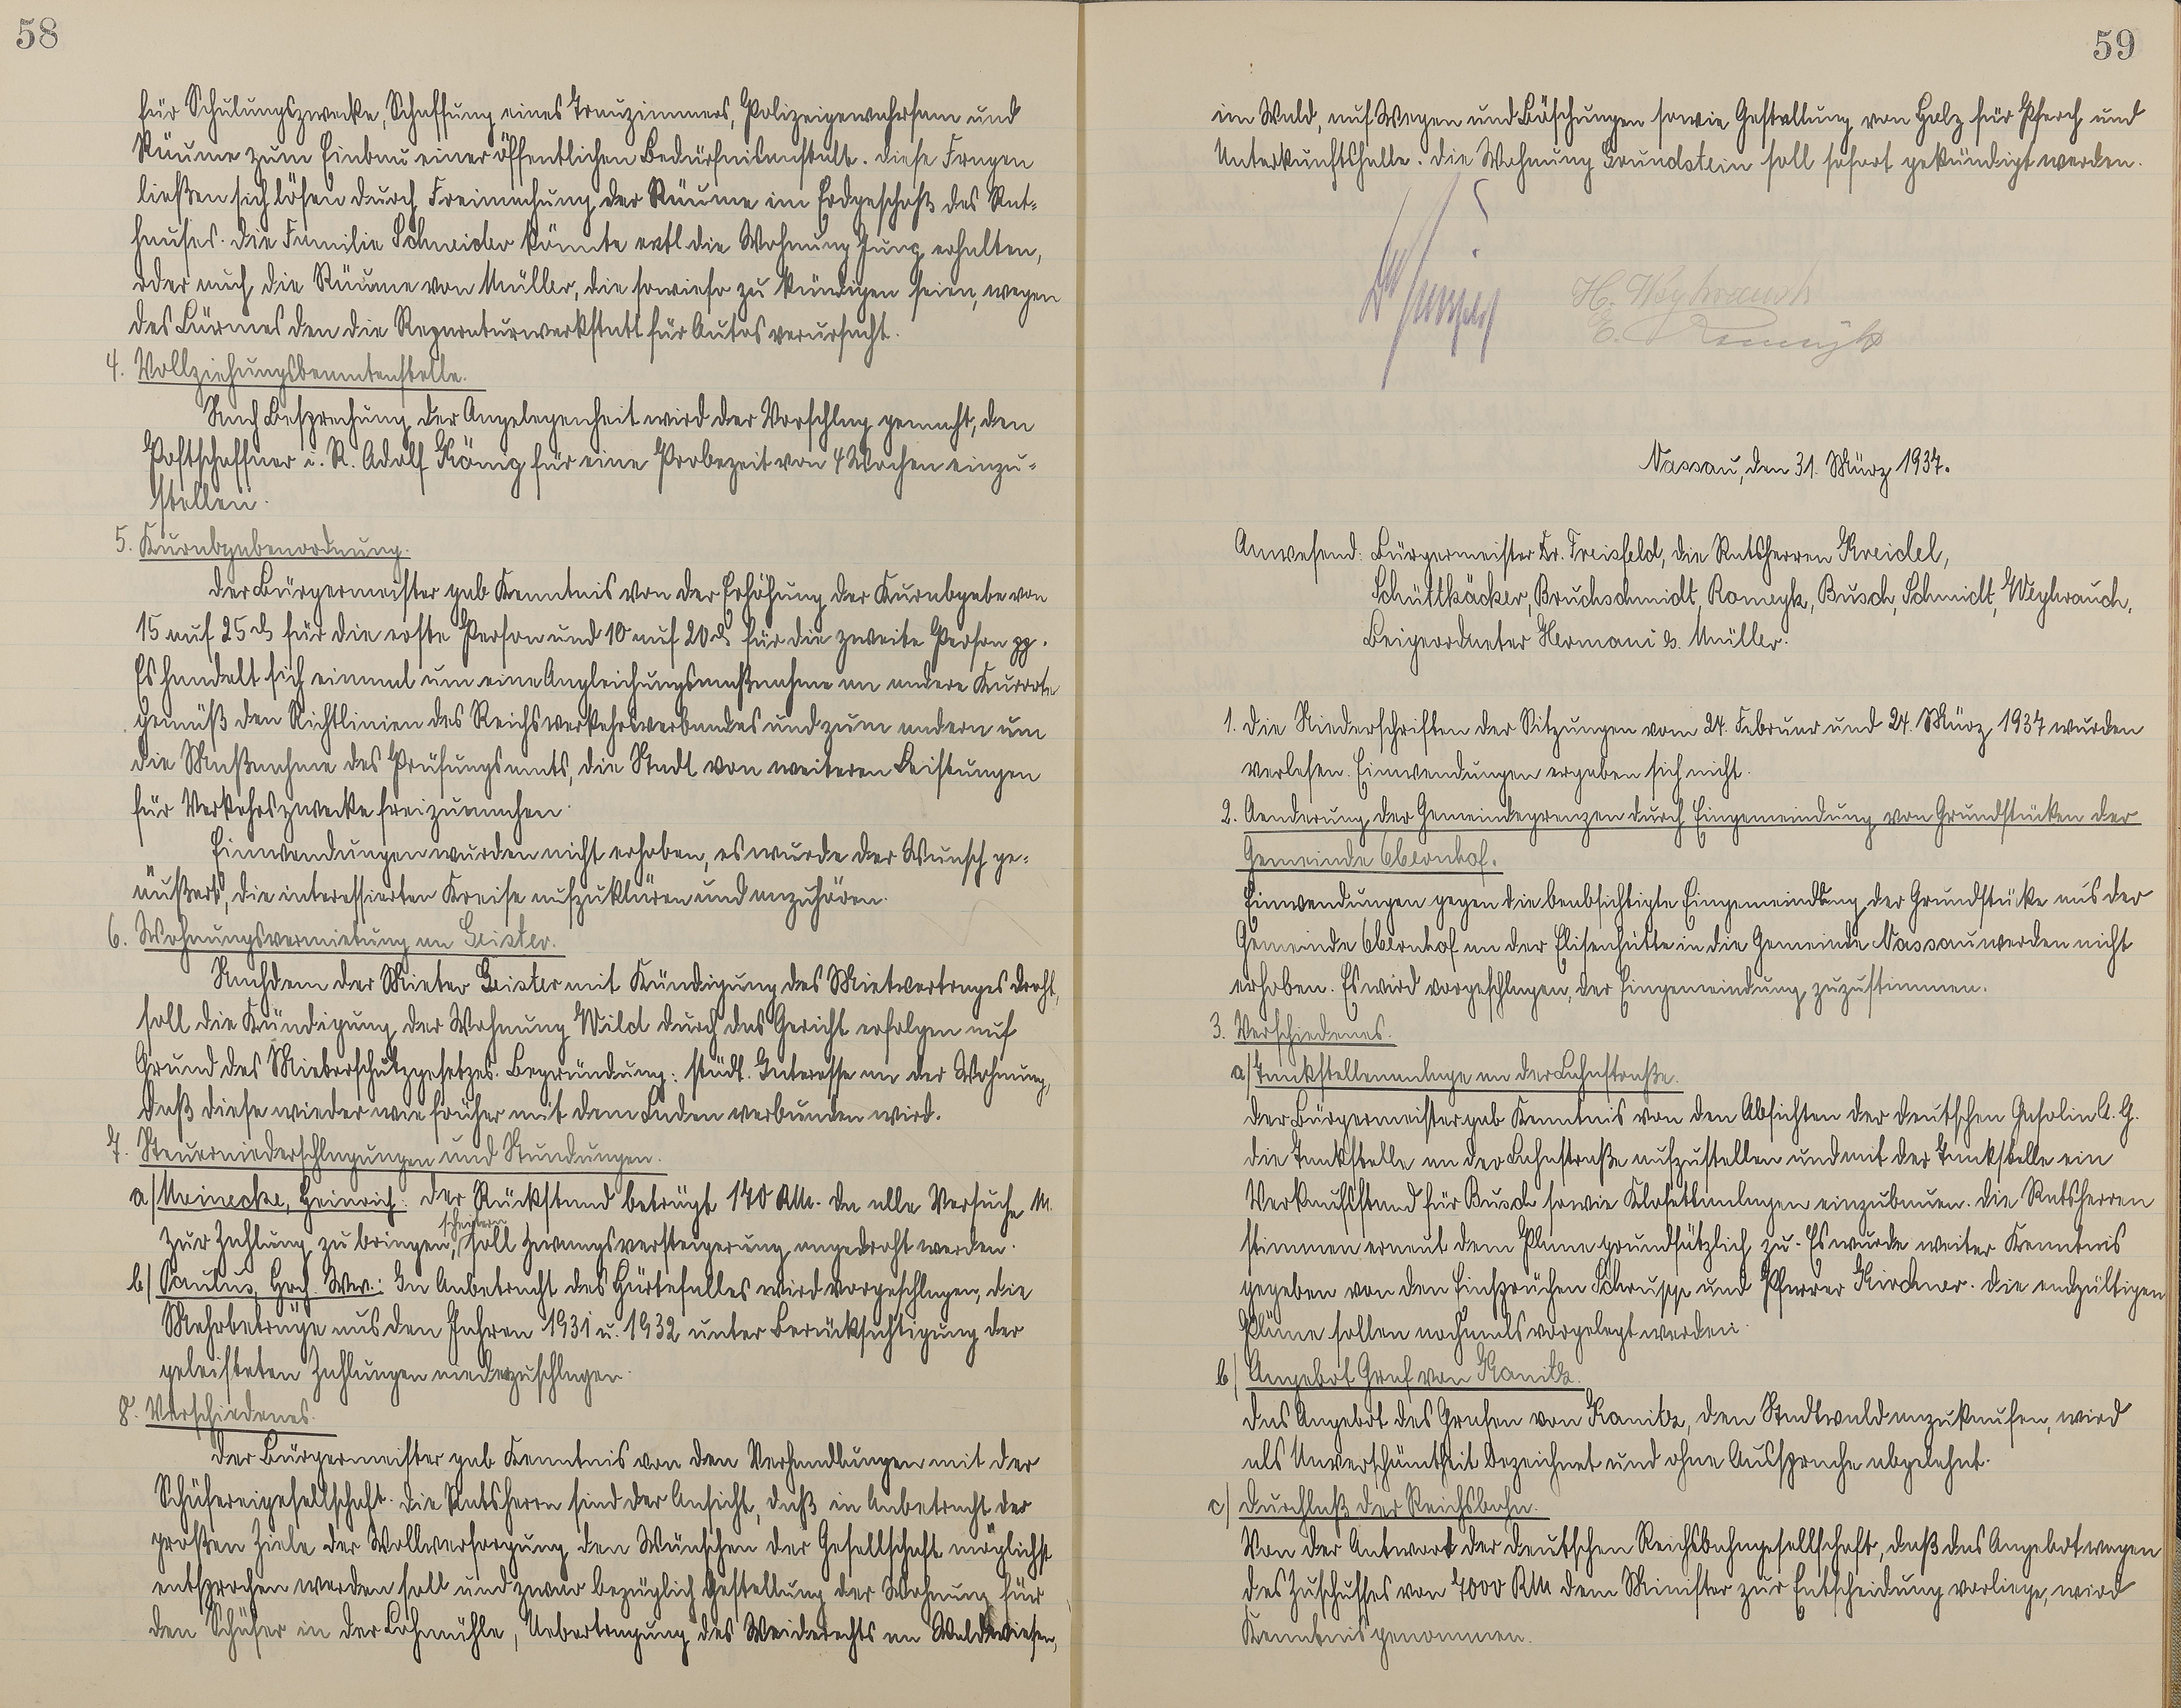 58
für Schulungszwecke, Schaffung eines Trauzimmers, Polizeigewahrsam und
Räume zum Einbau einer öffentlichen Bedürfnisanstalt. Diese Fragen
ließen sich lösen durch Freimachung der Räume im Erdgeschoß des Rat-
hauses. Die Familie Schneider könnte evtl die Wohnung Jung erhalten,
oder auch die Räume von Müller, die sowieso zu kündigen seien, wegen
des Lärmes den die Reparaturwerkstatt für Autos verursacht.
4. Vollziehungsbeamtenstelle.
Nach Besprechung der Angelegenheit wird der Vorschlag gemacht, den
Postschaffner i. R. Adolf König für eine Probezeit von 4 Wochen einzu-
stellen.
5. Kurabgabenordnung.
Der Bürgermeister gab Kenntnis von der Erhöhung der Kurabgabe von
15 auf 25 ₰ für die erste Person und 10 auf 20 ₰ für die zweite Person pp.
Es handelt sich einmal um eine Angleichungsmaßnahme an andere Kurorte
gemäß den Richtlinien des Reichsverkehrsverbandes und zum andern um
die Maßnahme des Prüfungsamts, die Stadt von weiteren Leistungen
für Verkehrszwecke freizumachen.
Einwendungen wurden nicht erhoben, es wurde der Wunsch ge-
äußert, die interessierten Kreise aufzuklären und anzuhören.
6. Wohnungsvermietung an Geister.
Nachdem der Mieter Geister mit Kündigung des Mietvertrages droht,
soll die Kündigung der Wohnung Wild durch das Gericht erfolgen auf
Grund des Mieterschutzgesetzes. Begründung: städt. Interesse an der Wohnung,
daß diese wieder wie früher mit dem Laden verbunden wird.
7. Steuerniederschlagungen und Stundungen.
a/ Meinecke, Heinrich: Der Rückstand beträgt 170 RM. Da alle Versuche M.
zur Zahlung zu bringen, scheitern soll Zwangsversteigerung angedroht werden.
b/ Paulus, Hch. Ww.: In Anbetracht des Härtefalles wird vorgeschlagen, die
Mehrbeträge aus den Jahren 1931 u. 1932 unter Berücksichtigung der
geleisteten Zahlungen niederzuschlagen.
8. Verschiedenes.
Der Bürgermeister gab Kenntnis von den Verhandlungen mit der
Schäfereigesellschaft. Die Ratsherrn sind der Ansicht, daß in Anbetracht der
großen Ziele der Wollversorgung den Wünschen der Gesellschaft möglichst
entsprochen werden soll und zwar bezüglich Gestellung der Wohnung für
den Schäfer in der Lohmühle, Uebertragung des Weiderechts an Waldwiesen,
59
im Wald, auf Wegen und Böschungen sowie Gestellung von Holz für Pferch und
Unterkunftshalle. Die Wohnung Grundstein soll sofort gekündigt werden.
H. Weyhrauch
E. Romeyk
Nassau, den 31. März 1937.
Anwesend: Bürgermeister Dr. Freisfeld, die Ratsherren Kreidel,
Schüttkäcker, Bruchschmidt, Romeyk, Busch, Schmidt, Weyhrauch,
Beigeordneter Hermani & Müller.
1. Die Niederschriften der Sitzungen vom 24. Februar und 24. März 1937 wurden
verlesen. Einwendungen ergaben sich nicht.
2. Aenderung der Gemeindegrenzen durch Eingemeindung von Grundstücken der
Gemeinde Obernhof.
Einwendungen gegen die beabsichtigte Eingemeindung der Grundstücke aus der
Gemeinde Obernhof an der Elisenhütte in die Gemeinde Nassau werden nicht
erhoben. Es wird vorgeschlagen, der Eingemeindung zuzustimmen.
3. Verschiedenes.
a/ Tankstellenanlage an der Lahnstraße.
Der Bürgermeister gab Kenntnis von den Absichten der Deutschen Gasolin A. G.
die Tankstelle an der Lahnstraße aufzustellen und mit der Tankstelle ein
Verkaufsstand für Busch sowie Klosettanlagen einzubauen. Die Ratsherren
stimmen erneut dem Plane grundsätzlich zu. Es wurde weiter Kenntnis
gegeben von den Einsprüchen Schrupp und Pfarrer Kirchner. Die endgültigen
Pläne sollen nochmals vorgelegt werden.
b/ Angebot Graf von Kanitz.
Das Angebot des Grafen von Kanitz, den Stadtwald anzukaufen, wird
als Unverschämtheit bezeichnet und ohne Aussprache abgelehnt.
c/ Durchlaß der Reichsbahn.
Von der Antwort der Deutschen Reichsbahngesellschaft, daß das Angebot wegen
des Zuschusses von 7000 RM dem Minister zur Entscheidung vorliege, wird
Kenntnis genommen.